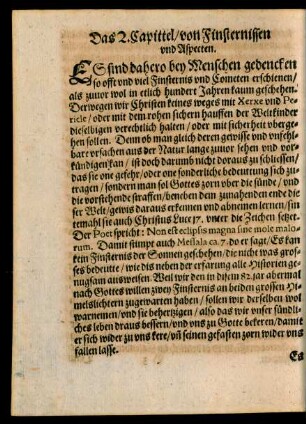 Das 2. Capittel/ von Finsternissen
vnd Aspecten.
ES sind dahero bey Menschen gedencken
so offt vnd viel Finsternis vnd Cometen erschienen/
als zuuor wol in etlich hundert Jahren kaum geschehen.
Derwegen wir Christen keines weges mit Xerxe vnd Pe-
ricle/ oder mit dem rohen sichern hauffen der Weltkinder
dieselbigen verechtlich halten/ oder mit sicherheit vberge-
hen sollen. Denn ob man gleich deren gewisse vnd vnfehl-
bare vrsachen aus der Natur lange zuuor sehen vnd vor-
kündigen kan/ ist doch darumb nicht daraus zu schliessen/
das sie one gefehr/ oder one sonderliche bedeutung sich zu-
tragen/ sondern man sol Gottes zorn vber die sünde/ vnd
die vorstehende straffen/ beneben dem zunahenden ende die
ser Welt/ gewis daraus erkennen vnd abnemen lernen/ sin-
temahl sie auch Christus Luce 17. vnter die Zeichen setzet.
Der Poet spricht: Non est eclipsis magna sine mole malo-
rum. Damit stimpt auch Messala ca. 7. do er sagt/ Es kan
kein Finsternis der Sonnen geschehen/ die nicht was gros-
ses bedeute/ wie dis neben der erfarung alle Historien ge-
nugsam ausweisen. Weil wir den in diesem 82. jar abermal
nach Gottes willen zwey Finsternis an beiden grossen Hi-
melsliechtern zugewarten haben/ sollen wir derselben wol
warnemen/ vnd sie behertzigen/ also das wir vnser sünd-
liches leben draus bessern/ vnd vns zu Gotte bekeren/ damit
er sich wider zu vns kere/ vñ seinen gefasten zorn wider vns
fallen lasse.
Es